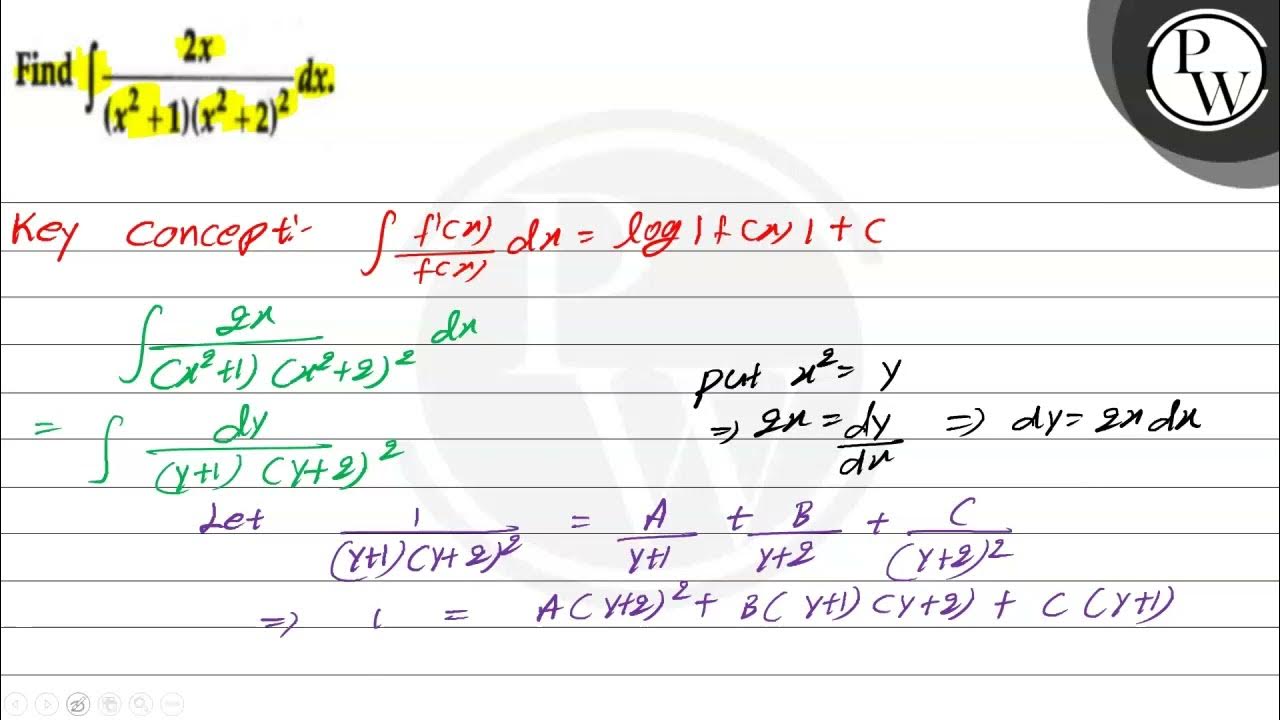 Find ∫ 2x / (x² + 1)(x² + 2)² dx.
PW
Key Concept:- ∫ f'(x) / f(x) dx = log|f(x)| + C
∫ 2x / (x²+1) (x²+2)² dx
put x² = y
= ∫ dy / (y+1) (y+2)²
⇒ 2x = dy/dx ⇒ dy = 2x dx
Let 1 / (y+1)(y+2)² = A / y+1 + B / y+2 + C / (y+2)²
⇒ 1 = A(y+2)² + B(y+1)(y+2) + C(y+1)